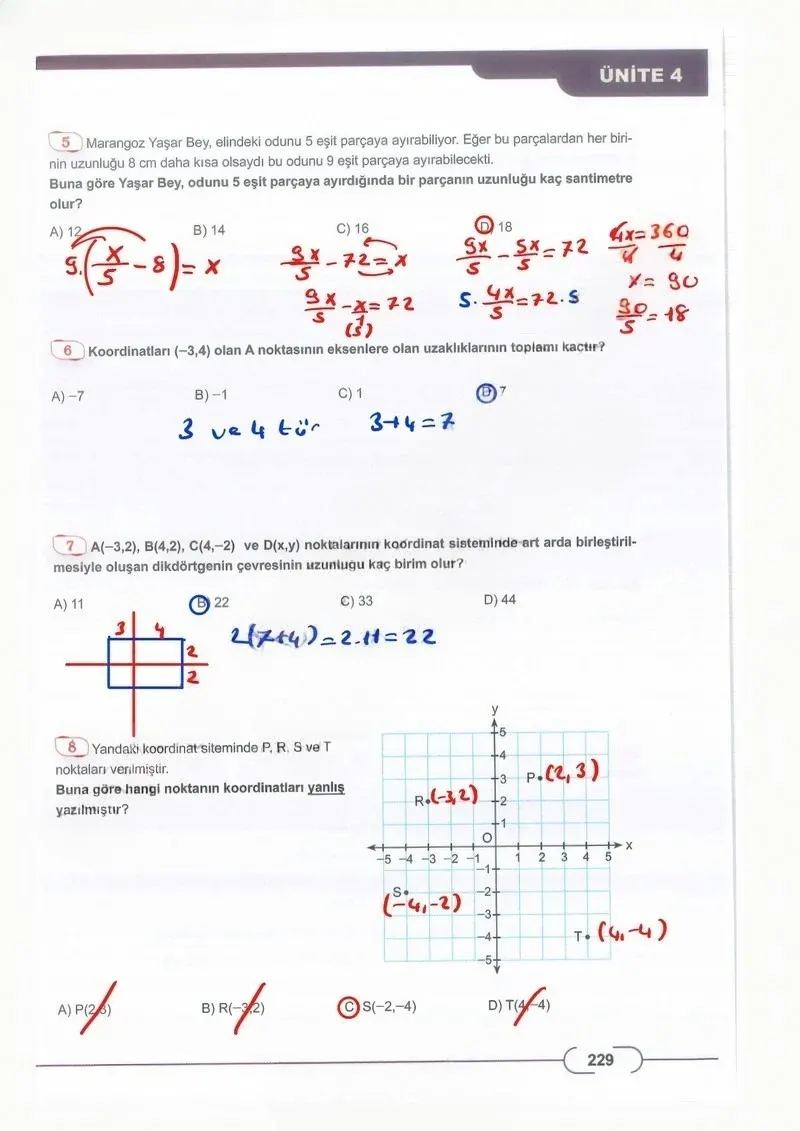 ÜNİTE 4
5 Marangoz Yaşar Bey, elindeki odunu 5 eşit parçaya ayırabiliyor. Eğer bu parçalardan her biri-
nin uzunluğu 8 cm daha kısa olsaydı bu odunu 9 eşit parçaya ayırabilecekti.
Buna göre Yaşar Bey, odunu 5 eşit parçaya ayırdığında bir parçanın uzunluğu kaç santimetre
olur?
A) 12 B) 14 C) 16 D) 18
9.(x/5 - 8) = x
9x/5 - 72 = x
9x/5 - x/1 = 72
(5)
9x/5 - 5x/5 = 72
5. 4x/5 = 72.5
4x/4 = 360/4
x = 90
90/5 = 18
6 Koordinatları (−3,4) olan A noktasının eksenlere olan uzaklıklarının toplamı kaçtır?
A) −7 B) −1 C) 1 D) 7
3 ve 4 tür 3+4=7
7 A(−3,2), B(4,2), C(4,−2) ve D(x,y) noktalarının koordinat sisteminde art arda birleştiril-
mesiyle oluşan dikdörtgenin çevresinin uzunluğu kaç birim olur?
A) 11 B) 22 C) 33 D) 44
3 4
2
2
2(7+4)=2.11=22
8 Yandaki koordinat siteminde P, R, S ve T
noktaları verilmiştir.
Buna göre hangi noktanın koordinatları yanlış
yazılmıştır?
y
5
4
3 P (2,3)
R (-3,2) 2
1
O x
−5 −4 −3 −2 −1 1 2 3 4 5
−1
S −2
(-4,-2)
−3
−4 T (4,-4)
−5
A) P(2,3) B) R(−3,2) C) S(−2,−4) D) T(4,−4)
229